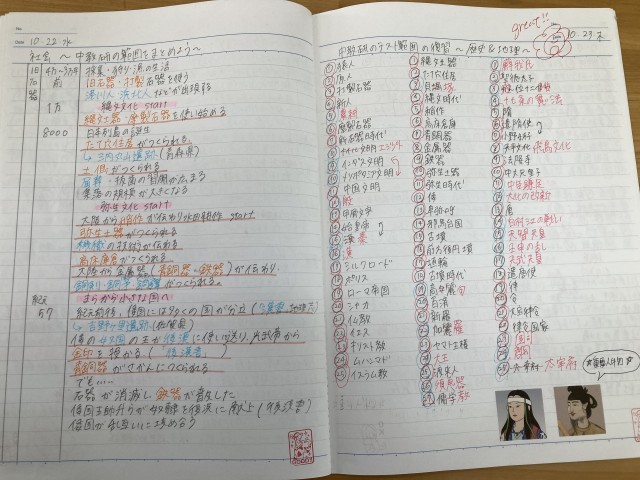 10.22.水
社会 ～中数研の範囲をまとめよう～
旧石器
4千~5千万年前
採集・狩り・漁の生活
旧石器・打製石器を使う
1万
縄文文化 start
縄文土器・磨製石器を使い始める
8000
日本列島の誕生
たて穴住居がつくられる
↳三内丸山遺跡(青森県)
土偶がつくられる
屈葬・抜歯の習慣が広まる
集落の規模が大きくなる
弥生文化 start
大陸から稲作が伝わり水田耕作 start
弥生土器がつくられる
機織の技術が伝わる
高床倉庫がつくられる
大陸から金属器(青銅器・鉄器)が伝わり
銅剣・銅矛・銅鐸がつくられる。
むらから小さな国へ
紀元前後、倭国には多くの国が分立(漢書地理志)
↳吉野ヶ里遺跡(佐賀県)
57
倭の奴国の王が後漢に使いを送り光武帝から
金印を授かる(後漢書)
青銅器がさかんにつくられる
でも…
石器が消滅し鉄器が普及した
倭国王帥升らが奴隷を後漢に献上(後漢書)
倭国が乱互いに攻め合う
great!!
10.23.木
中数研のテスト範囲の復習 ～歴史&地理～
① 猿人
② 原人
③ 打製石器
④ 新人
⑤ 農耕
⑥ 磨製石器
⑦ 青銅器
⑨ インダス文明
⑩ メソポタミア文明
⑪ 中国文明
⑫ 殷
⑬ 甲骨文字
⑭ 始皇帝
⑮ 秦
⑯ 漢
⑰ シルクロード
⑱ ポリス
⑲ ローマ帝国
⑳ シャカ
㉑ 仏教
㉒ イエス
㉓ キリスト教
㉔ ムハンマド
㉕ イスラム教
① 縄文土器
② たて穴住居
③ 貝塚
④ 縄文時代
⑤ 稲作
⑥ 高床倉庫
⑦ 青銅器
⑧ 金属器
⑨ 鉄器
⑩ 弥生土器
⑪ 弥生時代
⑫ 倭
⑬ 卑弥呼
⑭ 邪馬台国
⑮ 古墳
⑯ 前方後円墳
⑰ 埴輪
⑱ 古墳時代
⑲ 高句麗
⑳ 百済
㉑ 新羅
㉒ 加羅
㉓ ヤマト王権
㉔ 大王
㉕ 渡来人
㉖ 須恵器
㉗ 儒学
① 蘇我氏
② 聖徳太子
③ 冠位十二階
④ 十七条の憲法
⑤ 隋
⑥ 遣隋使
⑦ 小野妹子
⑧ 飛鳥文化
⑨ 法隆寺
⑩ 中大兄皇子
⑪ 中臣鎌足
⑫ 大化の改新
⑬ 唐
⑭ 白村江の戦い
⑮ 天智天皇
⑯ 壬申の乱
⑰ 天武天皇
⑱ 遣唐使
⑲ 律
⑳ 令
㉑ 大宝律令
㉒ 律令国家
㉕ 太宰府 大宰府